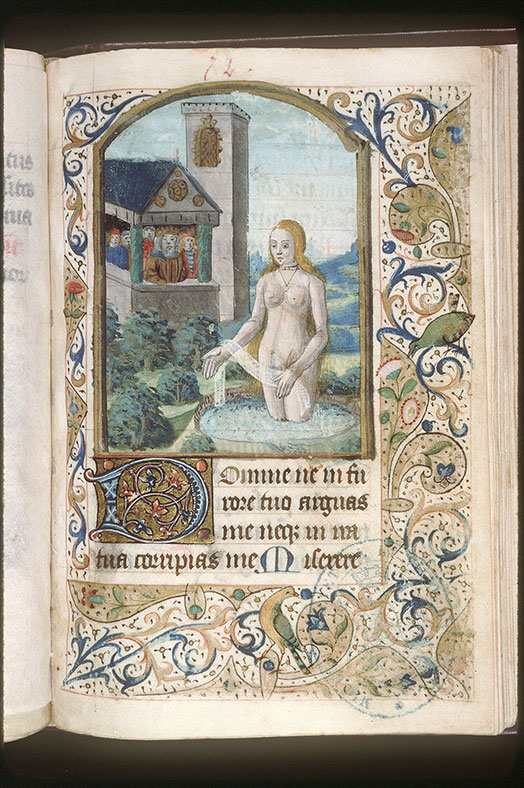 72.
Domine ne in fu
rore tuo arguas
me neqz in ira
tua corripias me Miserere